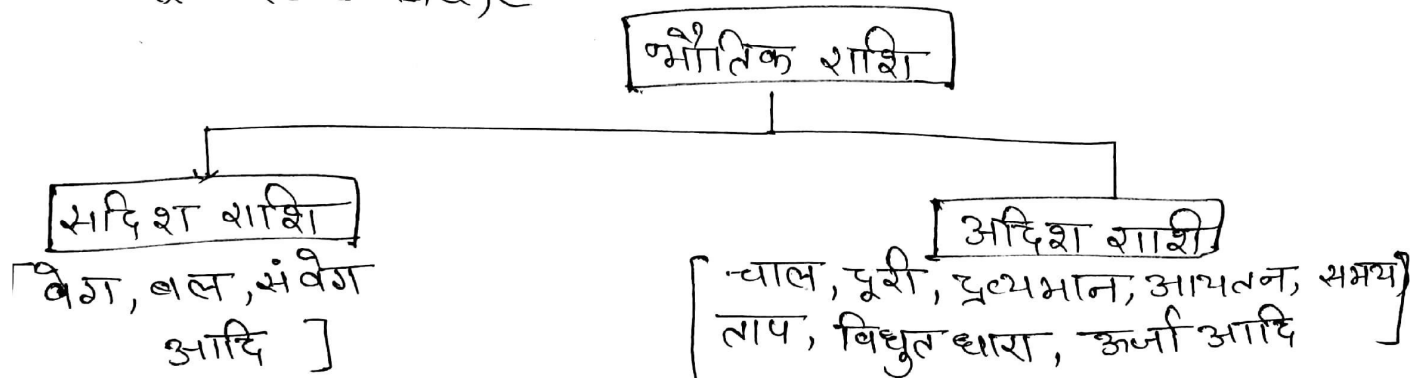 भौतिक राशि
सदिश राशि
अदिश राशी
[वेग, बल, संवेग
आदि ]
[ चाल, दूरी, द्रव्यमान, आयतन, समय,
ताप, विधुत धारा, ऊर्जा आदि ]